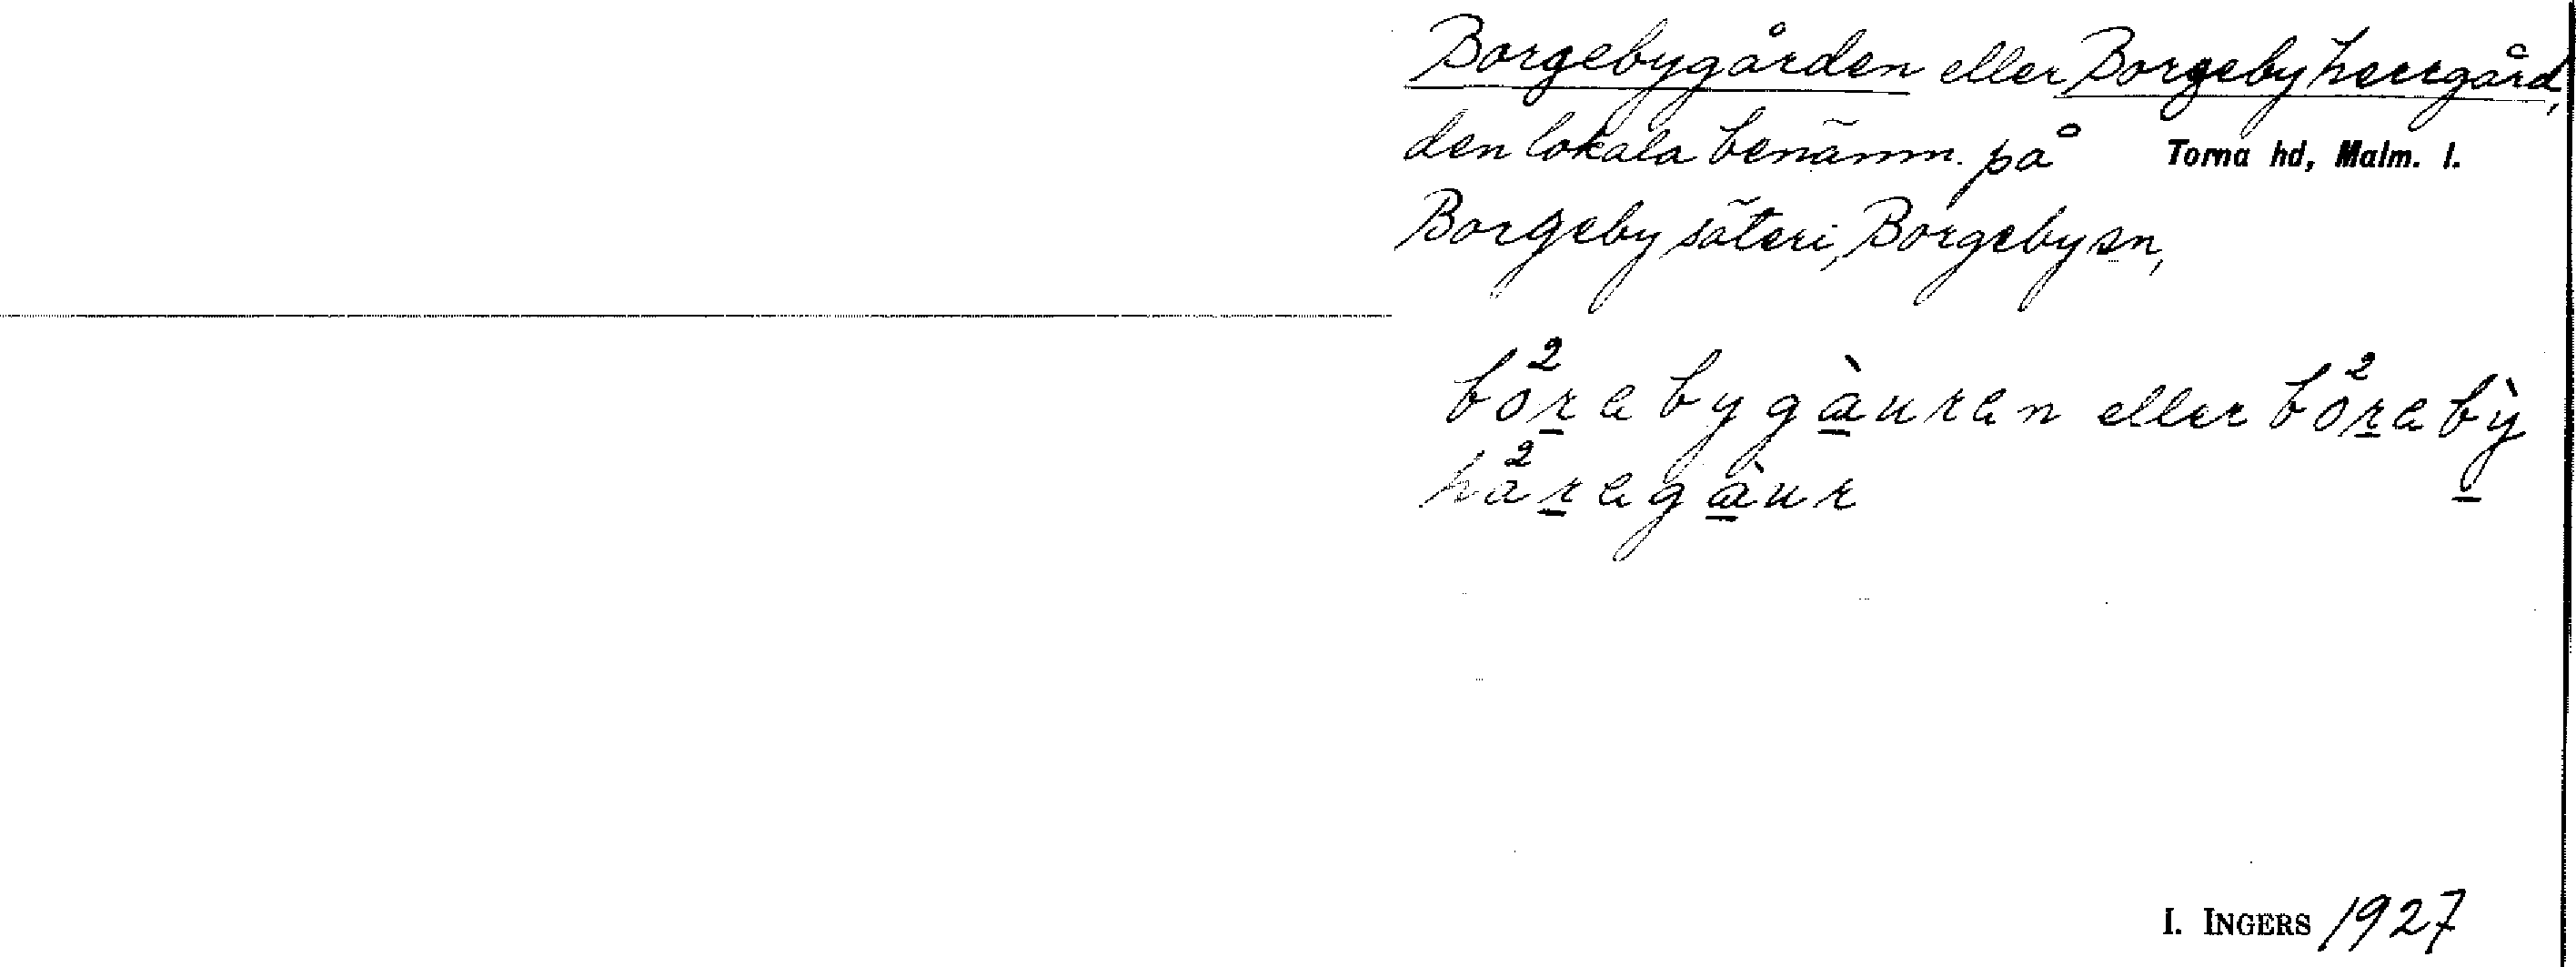 Borgebygården eller Borgeby herrgård,
den lokala benämn. på Torna hd, Malm. l.
Borgeby säteri, Borgeby sn,
bo²rebygàuren eller bo²rebỳ
hå²regàur
I. INGERS 1927